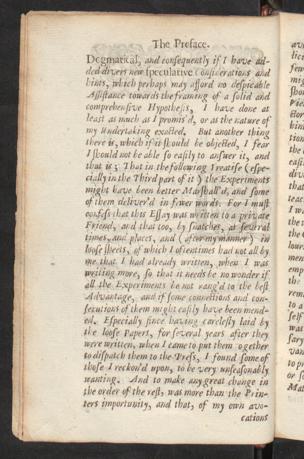 The Preface.
Dogmatical, and consequently if I have ad-
ded divers new speculative Considerations and
hints, which perhaps may afford no despicable
Assistance towards the framing of a solid and
comprehensive Hypothesis, I have done at
least as much as I promis'd, or as the nature of
my Undertaking exacted. But another thing
there is, which if it should be objected, I fear
I should not be able so easily to answer it, and
that is; That in the following Treatise (espe-
cially in the Third part of it) the Experiments
might have been better Marshall'd, and some
of them deliver'd in fewer words. For I must
confess that this Essay was written to a private
Friend, and that too, by snatches, at several
times, and places, and (after my manner) in
loose sheets, of which I oftentimes had not all by
me that I had already written, when I was
writing more, so that it needs be no wonder if
all the Experiments be not rang'd to the best
Advantage, and if some connections and con-
secutions of them might easily have been mend-
ed. Especially since having carelesly laid by
the loose Papers, for several years after they
were written, when I came to put them together
to dispatch them to the Press, I found some of
those I reckon'd upon, to be very unseasonably
wanting. And to make any great change in
the order of the rest, was more than the Prin-
ters importunity, and that, of my own avo-
cations